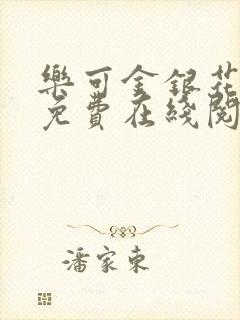 樂可金銀花
免費在綫閱
潘家東